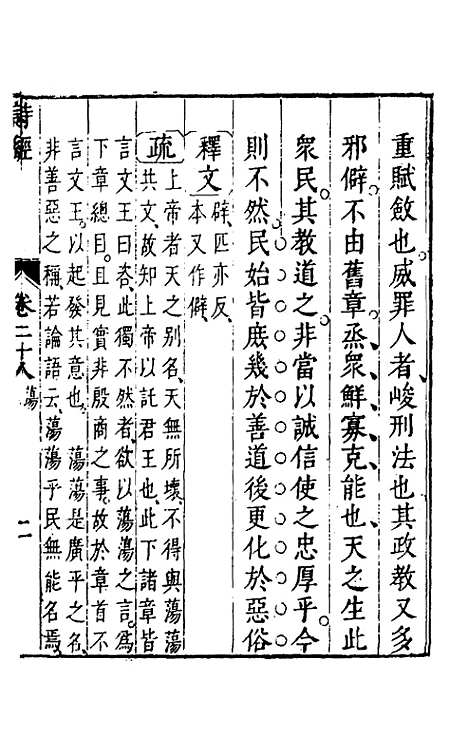 重賦斂也威罪人者峻刑法也其政教又多
邪僻不由舊章烝衆鮮寡克能也天之生此
衆民其教道之非當以誠信使之忠厚乎今
則不然民始皆庶幾於善道後更化於惡俗
釋文
辟匹亦反
本又作僻
疏
上帝者天之别名天無所壞不得與蕩蕩
共文故知上帝以託君王也此下諸章皆
言文王曰咨此獨不然者欲以蕩蕩之言爲
下章總目且見實非殷商之事故於章首不
言文王以起發其意也 蕩蕩是廣平之名
非善惡之稱若論語云蕩蕩乎民無能名焉
詩經
卷二十八
蕩
二